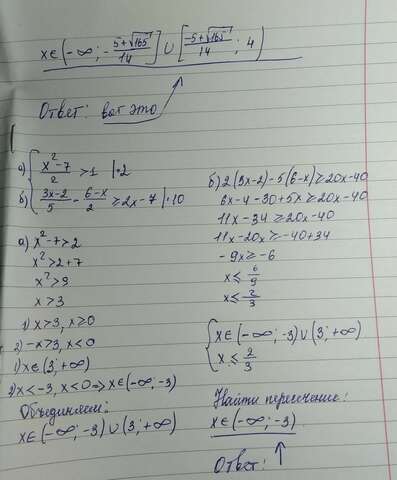 x∈(-∞; -5+√165/14] ∪ [-5+√165/14; 4)
Ответ: вот это
а) { x²-7/2 > 1 |·2
б) { 3x-2/5 - 6-x/2 ≥ 2x-7 |·10
а) x²-7>2
x²>2+7
x²>9
x>3
1) x>3, x≥0
2) -x>3, x<0
1) x∈(3; +∞)
2) x<-3, x<0 ⇒ x∈(-∞; -3)
Объединяем:
x∈(-∞; -3) ∪ (3; +∞)
б) 2(3x-2)-5(6-x)≥20x-40
6x-4-30+5x≥20x-40
11x-34≥20x-40
11x-20x≥-40+34
-9x≥-6
x≤ 6/9
x≤ 2/3
{ x∈(-∞; -3) ∪ (3; +∞)
x≤ 2/3
Найти пересечение:
x∈(-∞; -3)
Ответ: